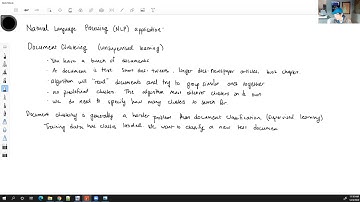 Natural Language Processing (NLP) application:
Document Clustering (unsupervised learning)
- We have a bunch of documents
- A document is text. Short docs - tweets, longer docs - newspaper articles, book chapter
- algorithm will "read" documents and try to group similar ones together
- no predefined clusters. The algorithm must discover clusters on its own
- we do need to specify how many clusters to search for
Document clustering is generally a harder problem than document classification (supervised learning)
Training data has classes labeled. We want to classify a new test document